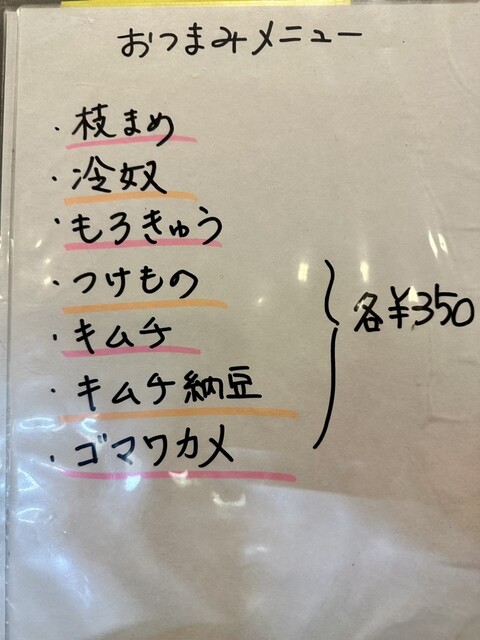 おつまみメニュー
・枝まめ
・冷奴
・もろきゅう
・つけもの
・キムチ
・キムチ納豆
・ゴマワカメ
各¥350